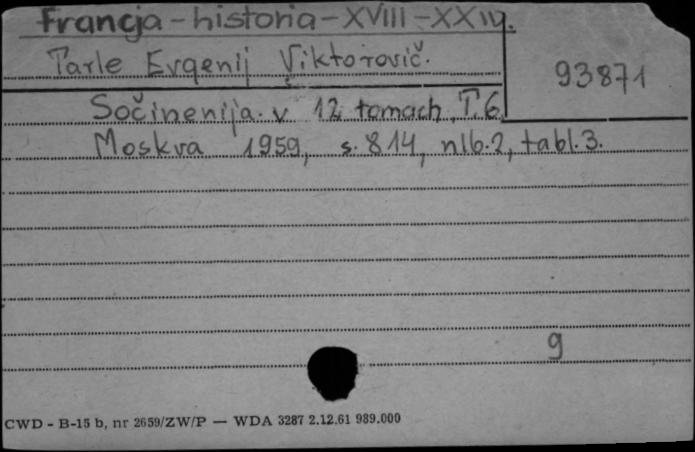 Francja - historia - XVIII - XX w.
Tarle Evgenij Viktorovič.
93871
Sočinenija. v 12 tomach, T. 6
Moskva 1959, s. 814, nlb. 2, tabl. 3.
9
CWD - B-15 b, nr 2659/ZW/P — WDA 3287 2.12.61 989.000